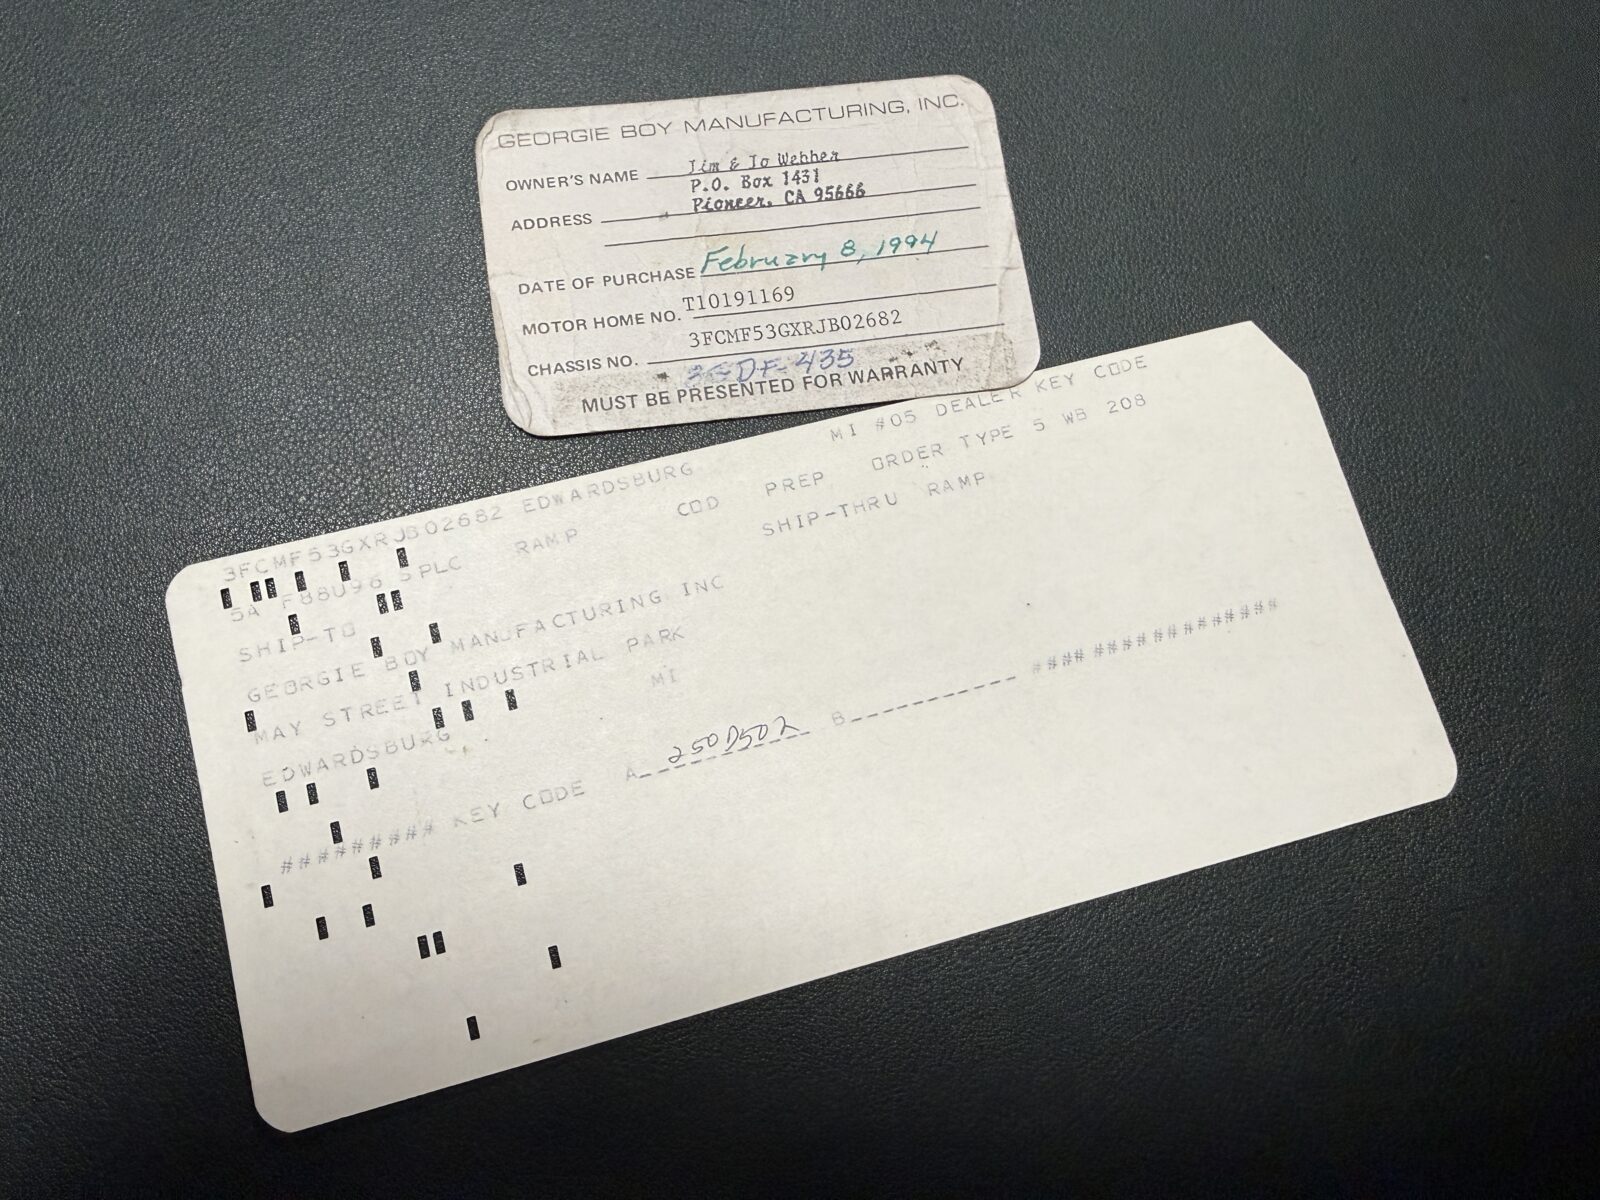 GEORGIE BOY MANUFACTURING, INC.
OWNER'S NAME Jim & Jo Webber
P.O. Box 1431
ADDRESS Pioneer, CA 95666
DATE OF PURCHASE February 8, 1994
MOTOR HOME NO. T10191169
CHASSIS NO. 3FCMF53GXRJB02682
DF 435
MUST BE PRESENTED FOR WARRANTY
3FCMF53GXRJB02682 EDWARDSBURG MI #05 DEALER KEY CODE
5A F88U96 SPLC RAMP COD PREP ORDER TYPE 5 WB 208
SHIP-TO SHIP-THRU RAMP
GEORGIE BOY MANUFACTURING INC
MAY STREET INDUSTRIAL PARK
EDWARDSBURG MI
######### KEY CODE A 250D502 B---------- ################